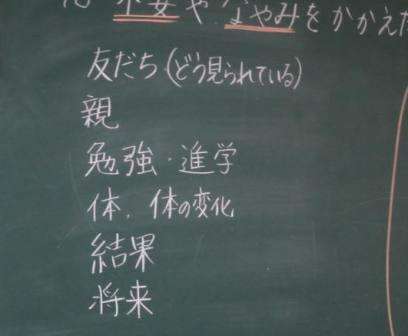 不安やなやみをかかえた
友だち（どう見られている）
親
勉強・進学
体、体の変化
結果
将来